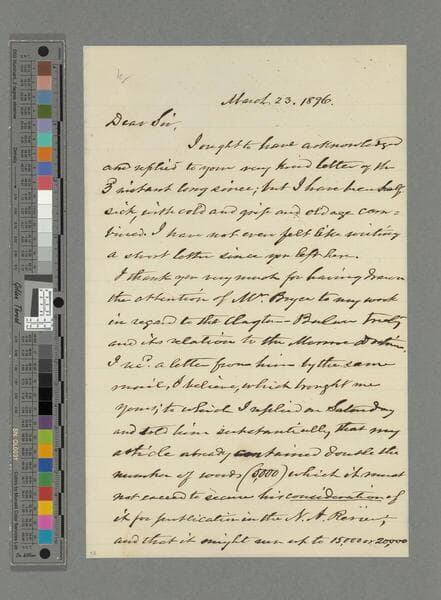 March 23, 1896.
Dear Sir,
I ought to have acknowledged
and replied to your very kind letter of the
3 instant long since; but I have been half
sick with cold and grip and old age com-
bined. I have not even felt like writing
a short letter since you left here.
I thank you very much for having drawn
the attention of Mr. Bryce to my work
in regard to the Clayton-Bulwer treaty
and its relation to the Monroe Doctrine.
I recd. a letter from him by the same
mail, I believe, which brought me
yours; to which I replied on Saturday
and told him substantially, that my
article already contained double the
number of words (5000) which it must
not exceed to secure his consideration of
it for publication in the N. A. Review,
and that it might run up to 15,000 or 20,000